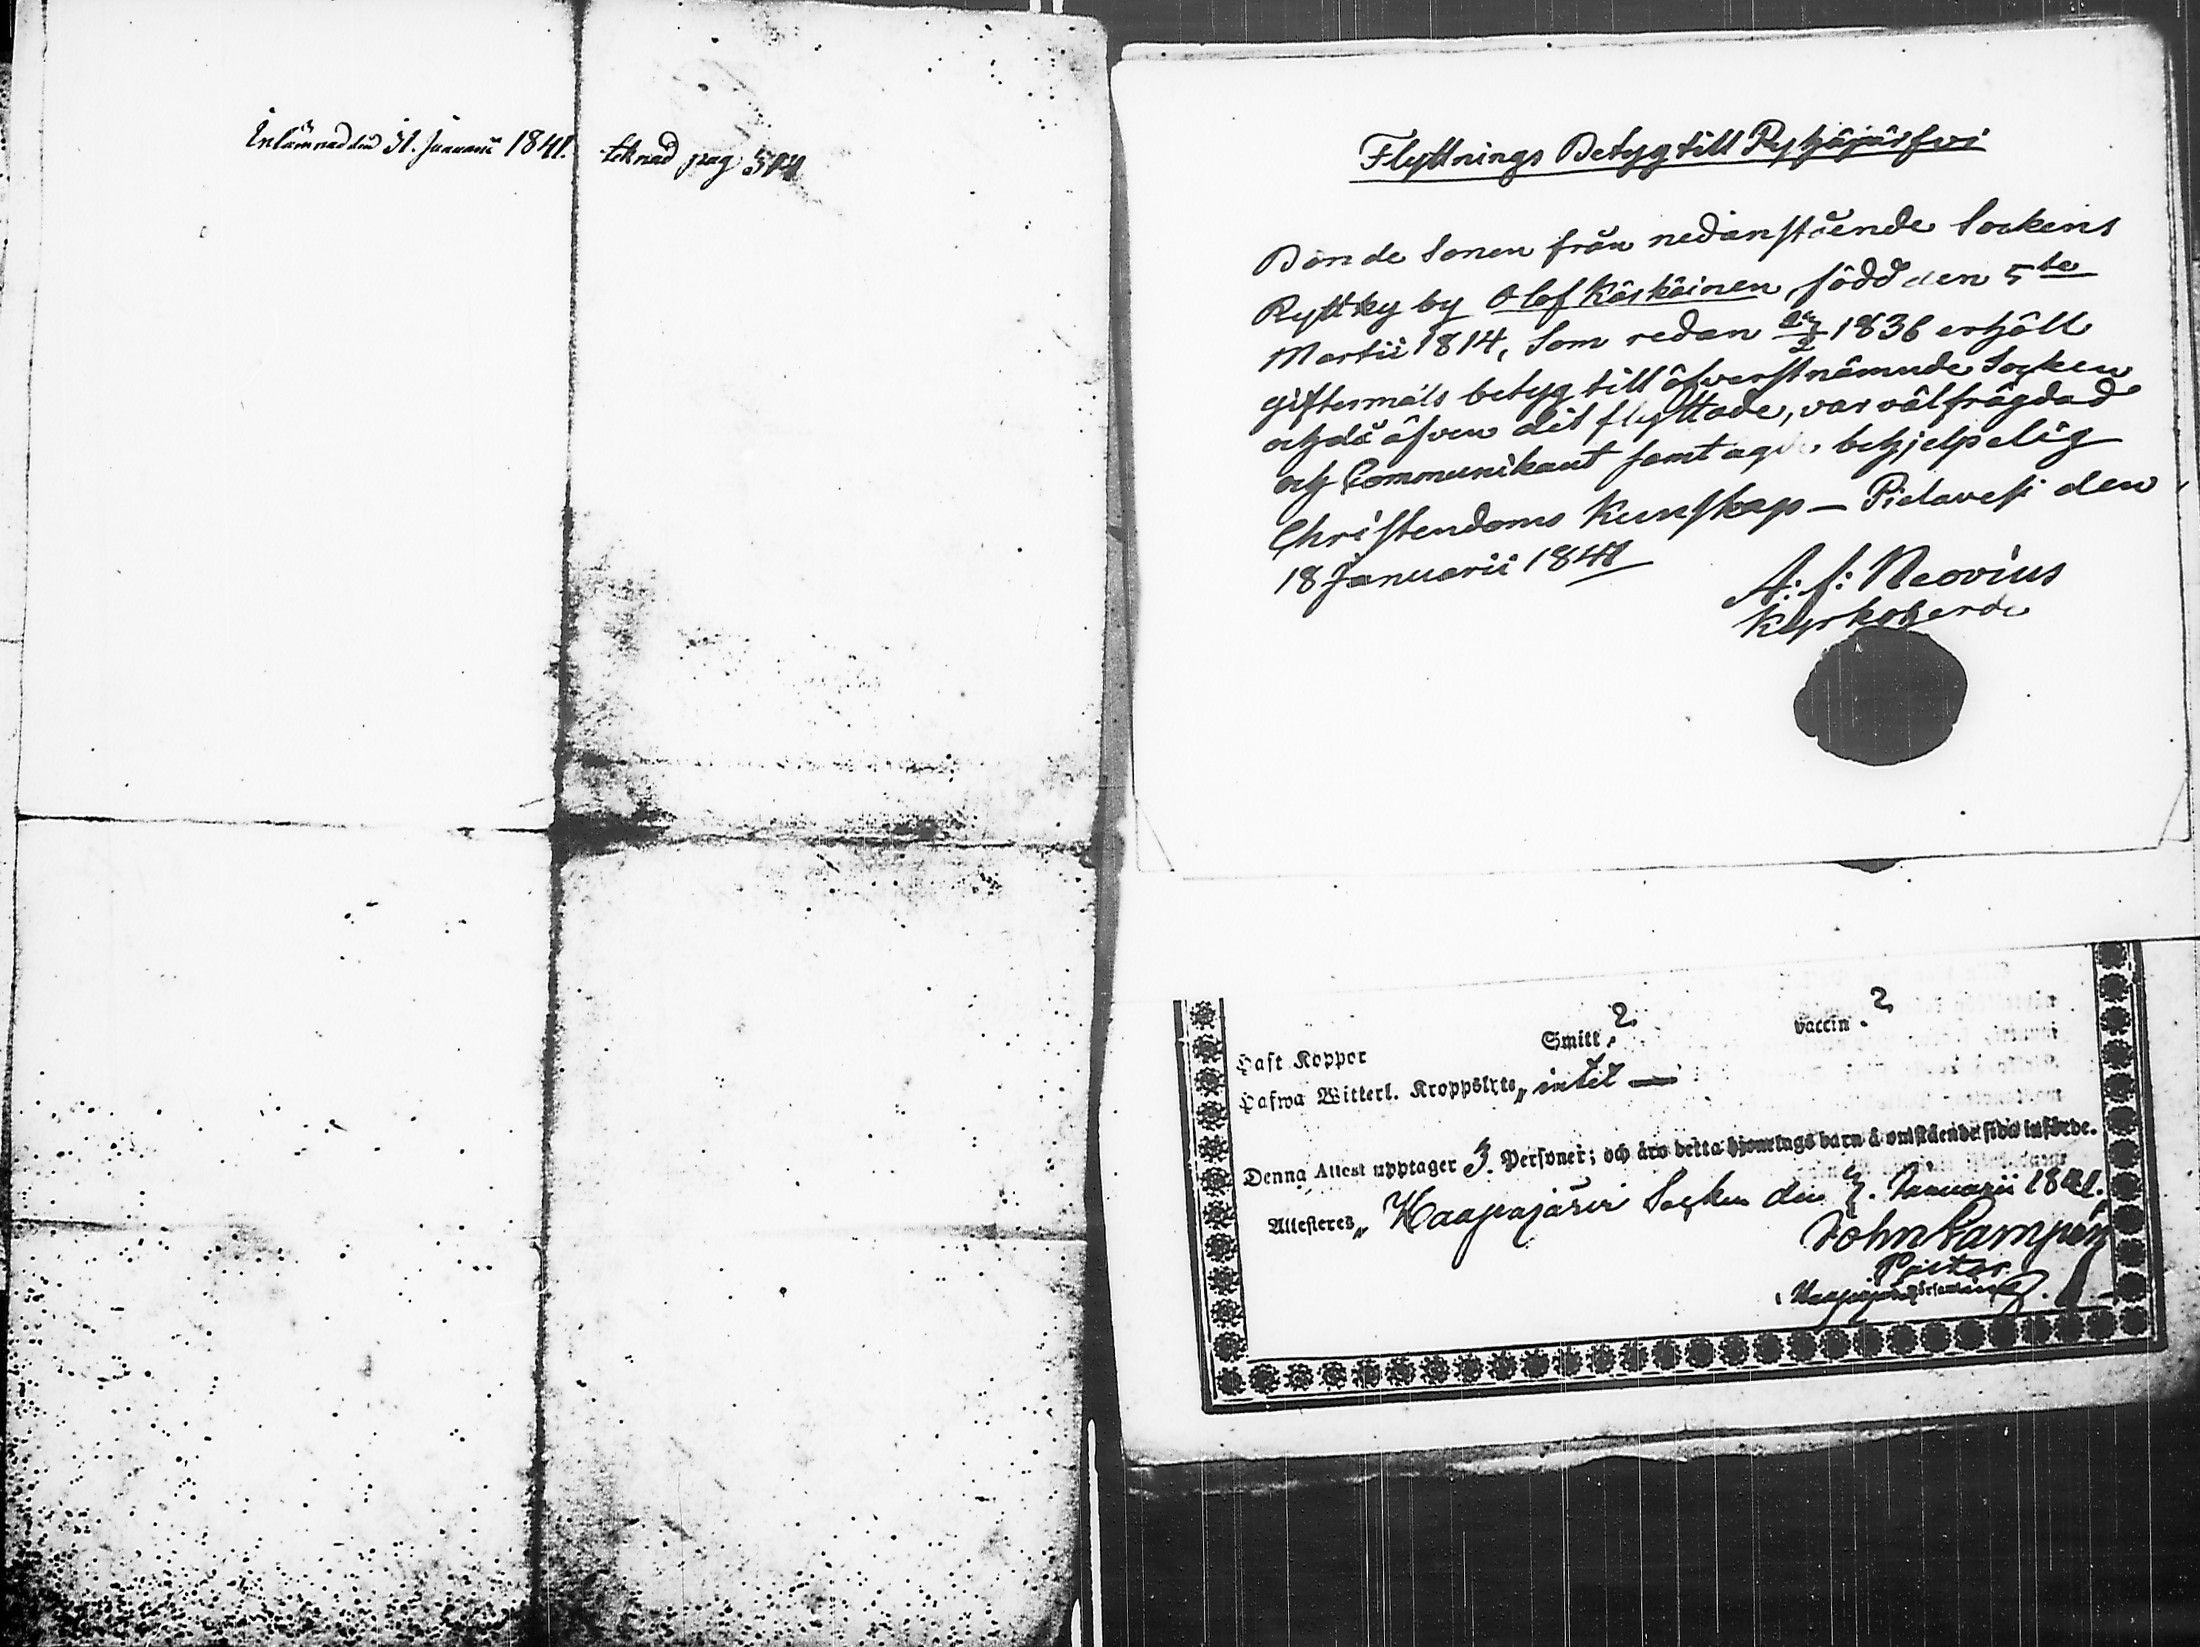 Inlämnad den 31. Januarii 1841. teknad pag 504
Flyttnings Betyg till Pyhäjärfvi
Bonde Sonen från nedanstående Sockens
Ryttky by Olof Käskäinen, född den 5te
Martii 1814, Som redan 1836 erhöll
giftermåls betyg till öfverstnämnde Socken
och då äfven dit flyttade, var välfrägdad
och Communikant samt behjelpelig
Christendoms Kunskap – Pielavesi den
18 Januarii 1841
A: f: Neovius
Kyrkoherde
Haft Koppor Smitt. 2 vaccin. 2
Hafwa Witterl. Kroppslyte, intet —
Denna Attest upptager 3. Personer; och äro detta hjonelags barn å omstående sida införde.
Attesteres, Haapajärvi Socken den 7. Januarii 1841.
John Lampén
Pastor.